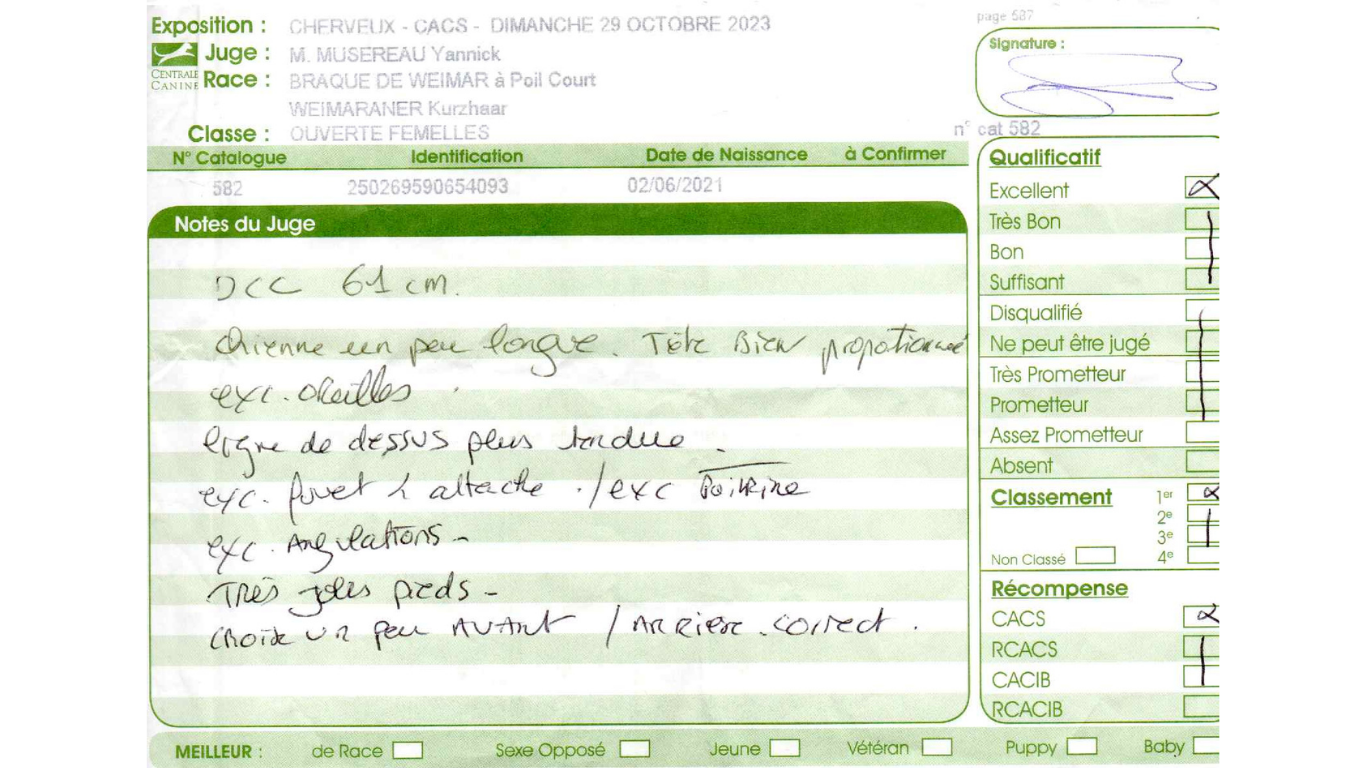 page 587
Exposition : CHERVEUX - CACS - DIMANCHE 29 OCTOBRE 2023
Juge : M. MUSEREAU Yannick
CENTRALE CANINE
Race : BRAQUE DE WEIMAR à Poil Court
WEIMARANER Kurzhaar
Classe : OUVERTE FEMELLES
n° cat 582
Signature :
N° Catalogue Identification Date de Naissance à Confirmer
582 250269590654093 02/06/2021
Notes du Juge
DCC 61 cm.
Chienne un peu longue. Tête Bien propotionné
exc. oreilles.
ligne de dessus plus tendue.
exc. fouet & attache. / exc Poitrine
exc. Angulations -
Très jolies pieds -
croise un peu AVANT / ARRIERE. correct.
Qualificatif
Excellent
Très Bon
Bon
Suffisant
Disqualifié
Ne peut être jugé
Très Prometteur
Prometteur
Assez Prometteur
Absent
Classement 1er
2e
3e
Non Classé 4e
Récompense
CACS
RCACS
CACIB
RCACIB
MEILLEUR : de Race Sexe Opposé Jeune Vétéran Puppy Baby